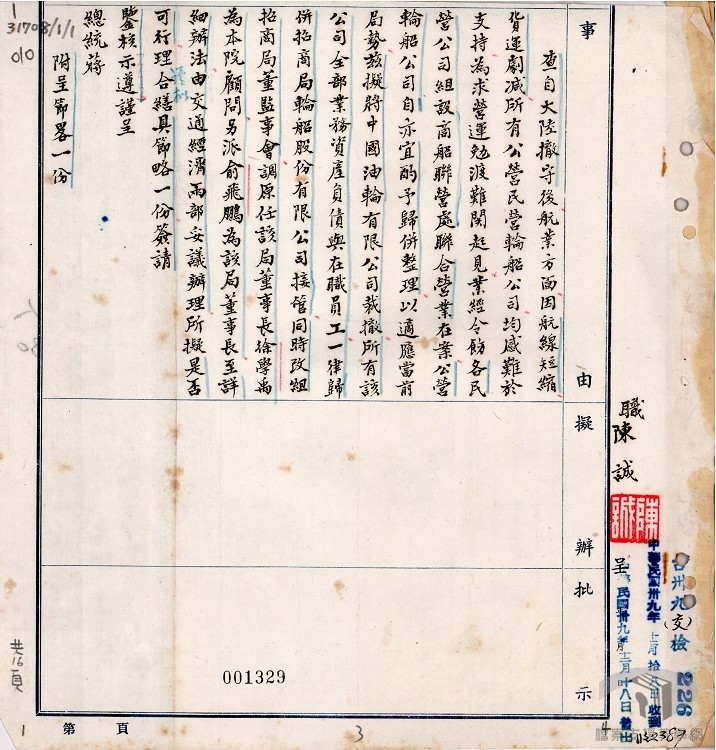 事
由
擬
辦
批
示
職陳誠
呈
查自大陸撤守後航業方面因航線短縮
貨運劇減所有公營民營輪船公司均感難於
支持為求營運勉渡難関起見業經令飭各民
營公司組設商船聯營處聯合營業在案公營
輪船公司自亦宜酌予歸併整理以適應當前
局勢兹擬將中國油輪有限公司裁撤所有該
公司全部業務資產負債與在職員工一律歸
併招商局輪船股份有限公司接管同時改組
招商局董監事會調原任該局董事長徐學禹
為本院顧問另派俞飛鵬為該局董事長至詳
細辦法由交通經濟兩部妥議辦理所擬是否
可行理合繕具節略一份簽請
鑒核示遵謹呈
總統蔣
附呈節畧一份
陳誠
台卅九(交)檢 226
31708/1/1
010
共16頁
001329
第 頁
1
3
4